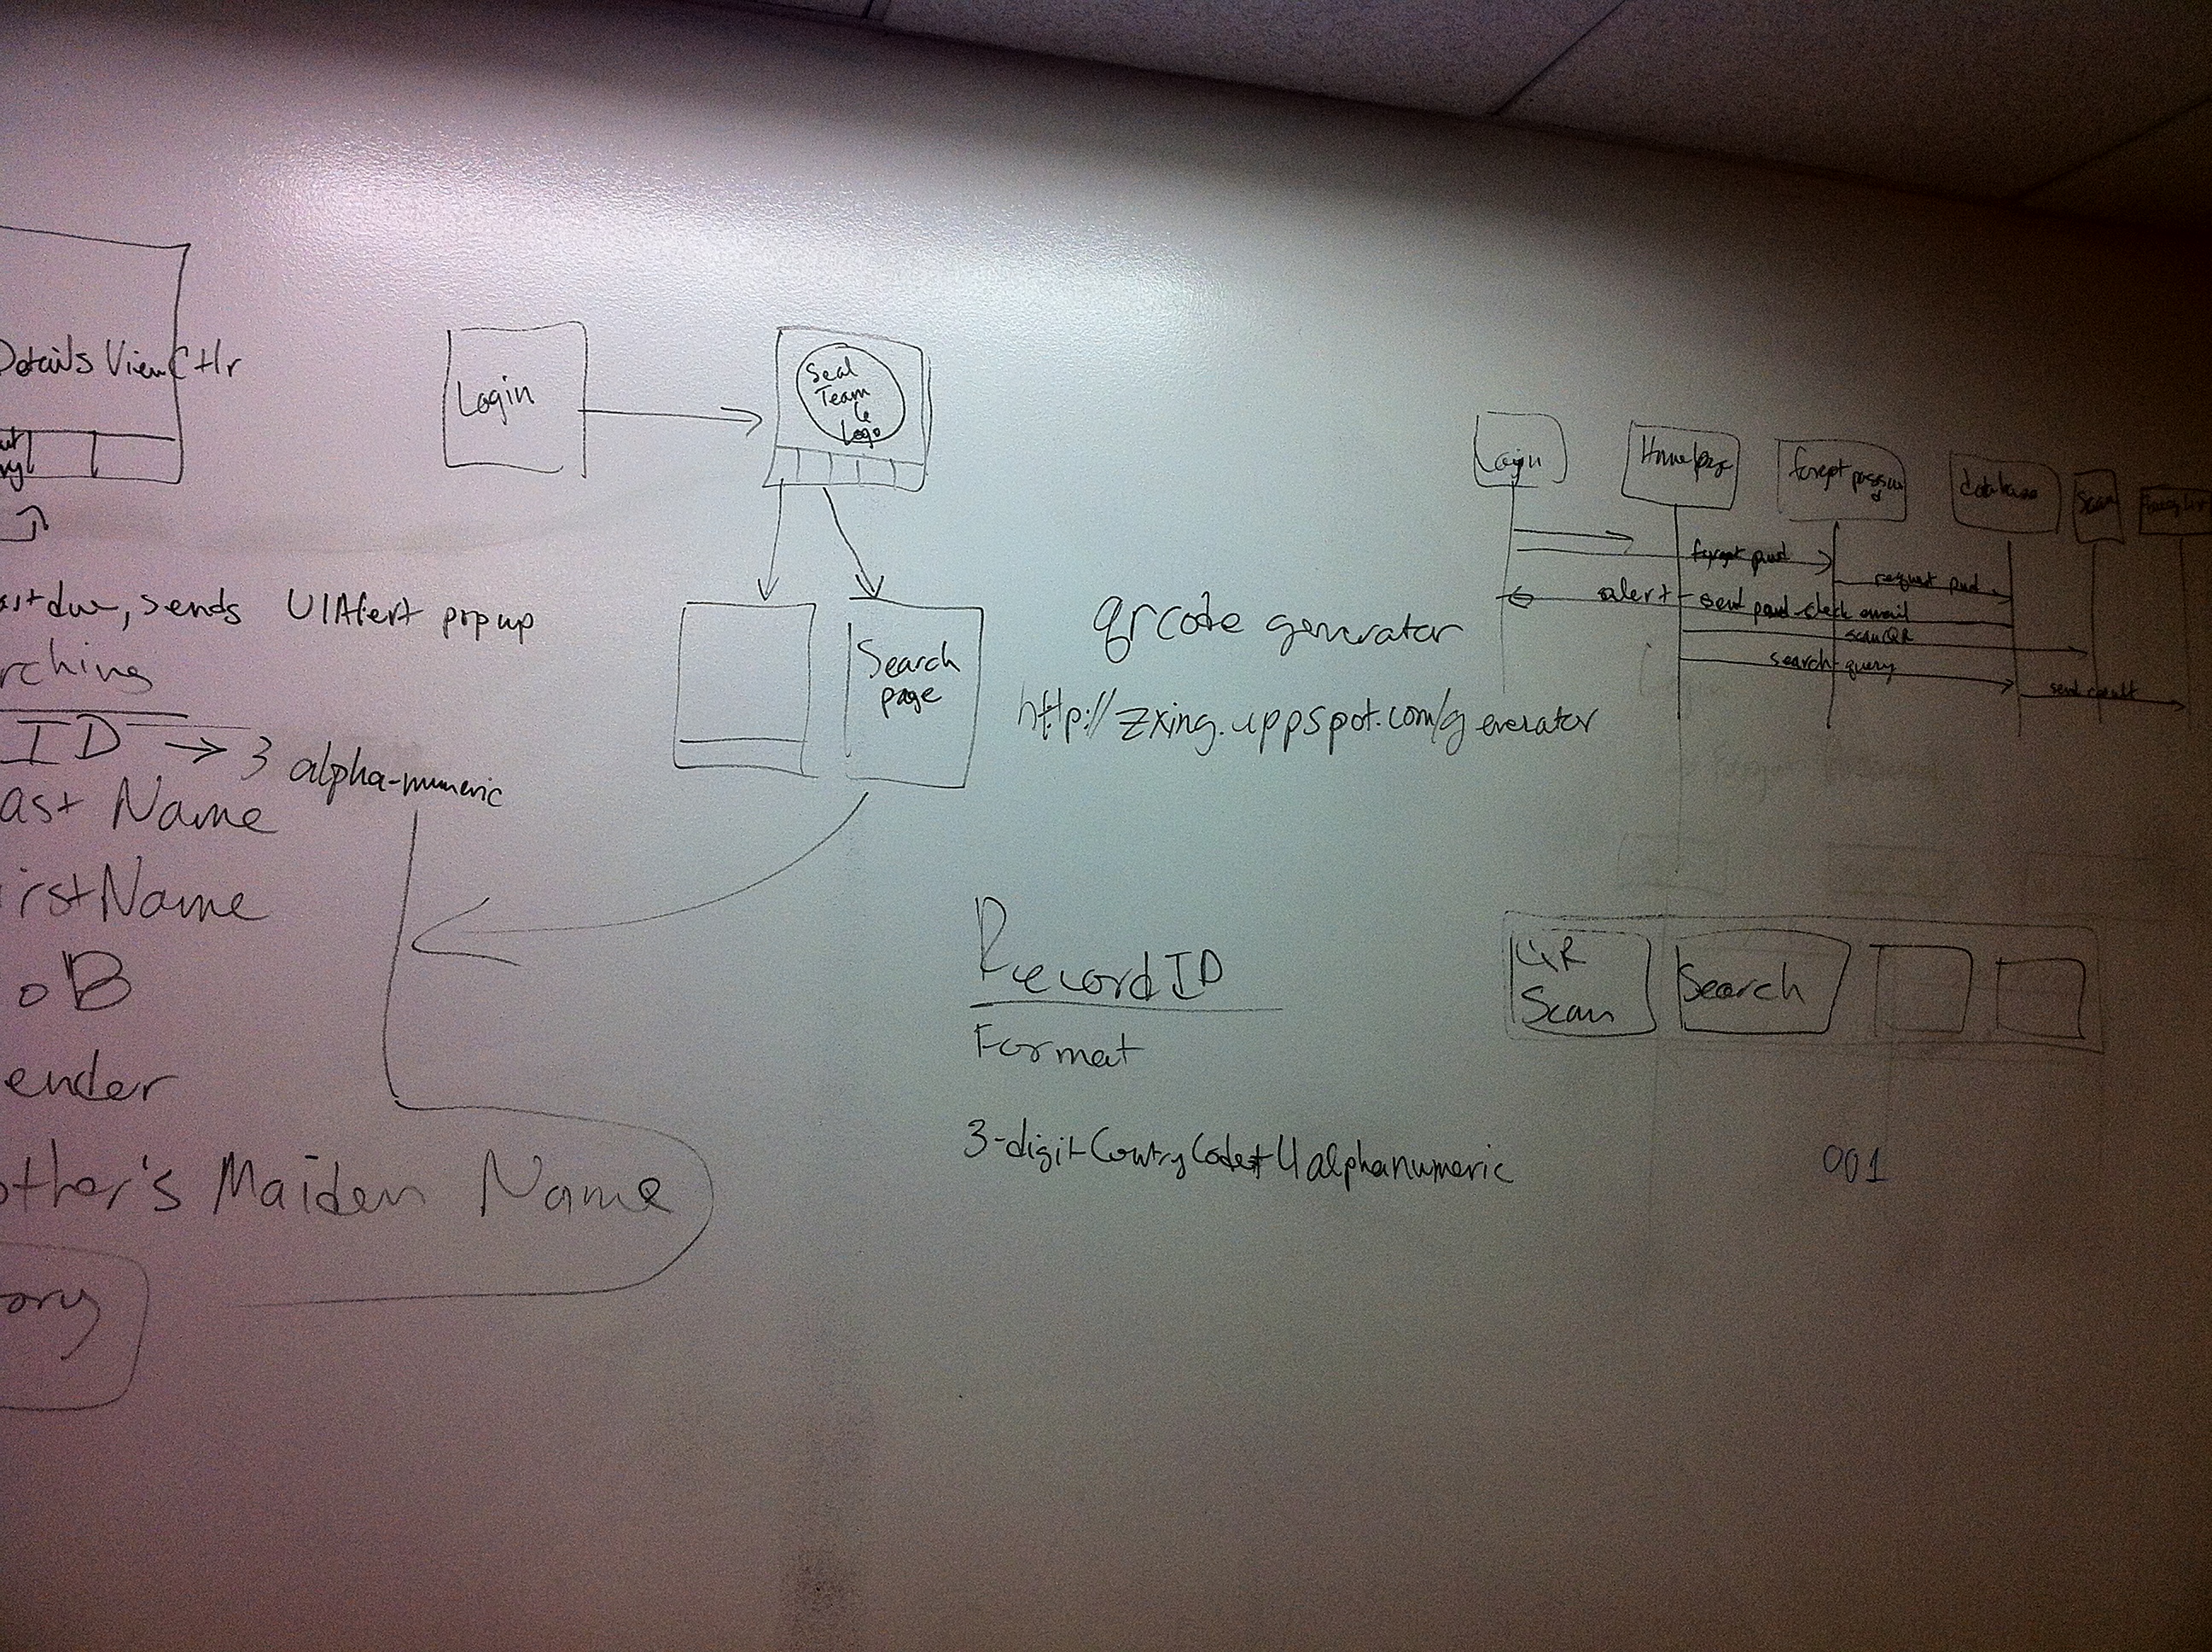 Details ViewCtlr
sends UIAlert popup
rching
ID → 3 alpha-numeric
ast Name
irstName
oB
ender
other's Maiden Name
ory
Login
Seal
Team
6
Logo
Search
page
qrcode generator
http://zxing.appspot.com/generator
RecordID
Format
3-digit Country Code + 4 alphanumeric
Login
Homepage
forgot password
database
Scan
forgot pwd
request pwd
alert - send pwd - check email
scanQR
search-query
send result
QR
Scan
Search
001